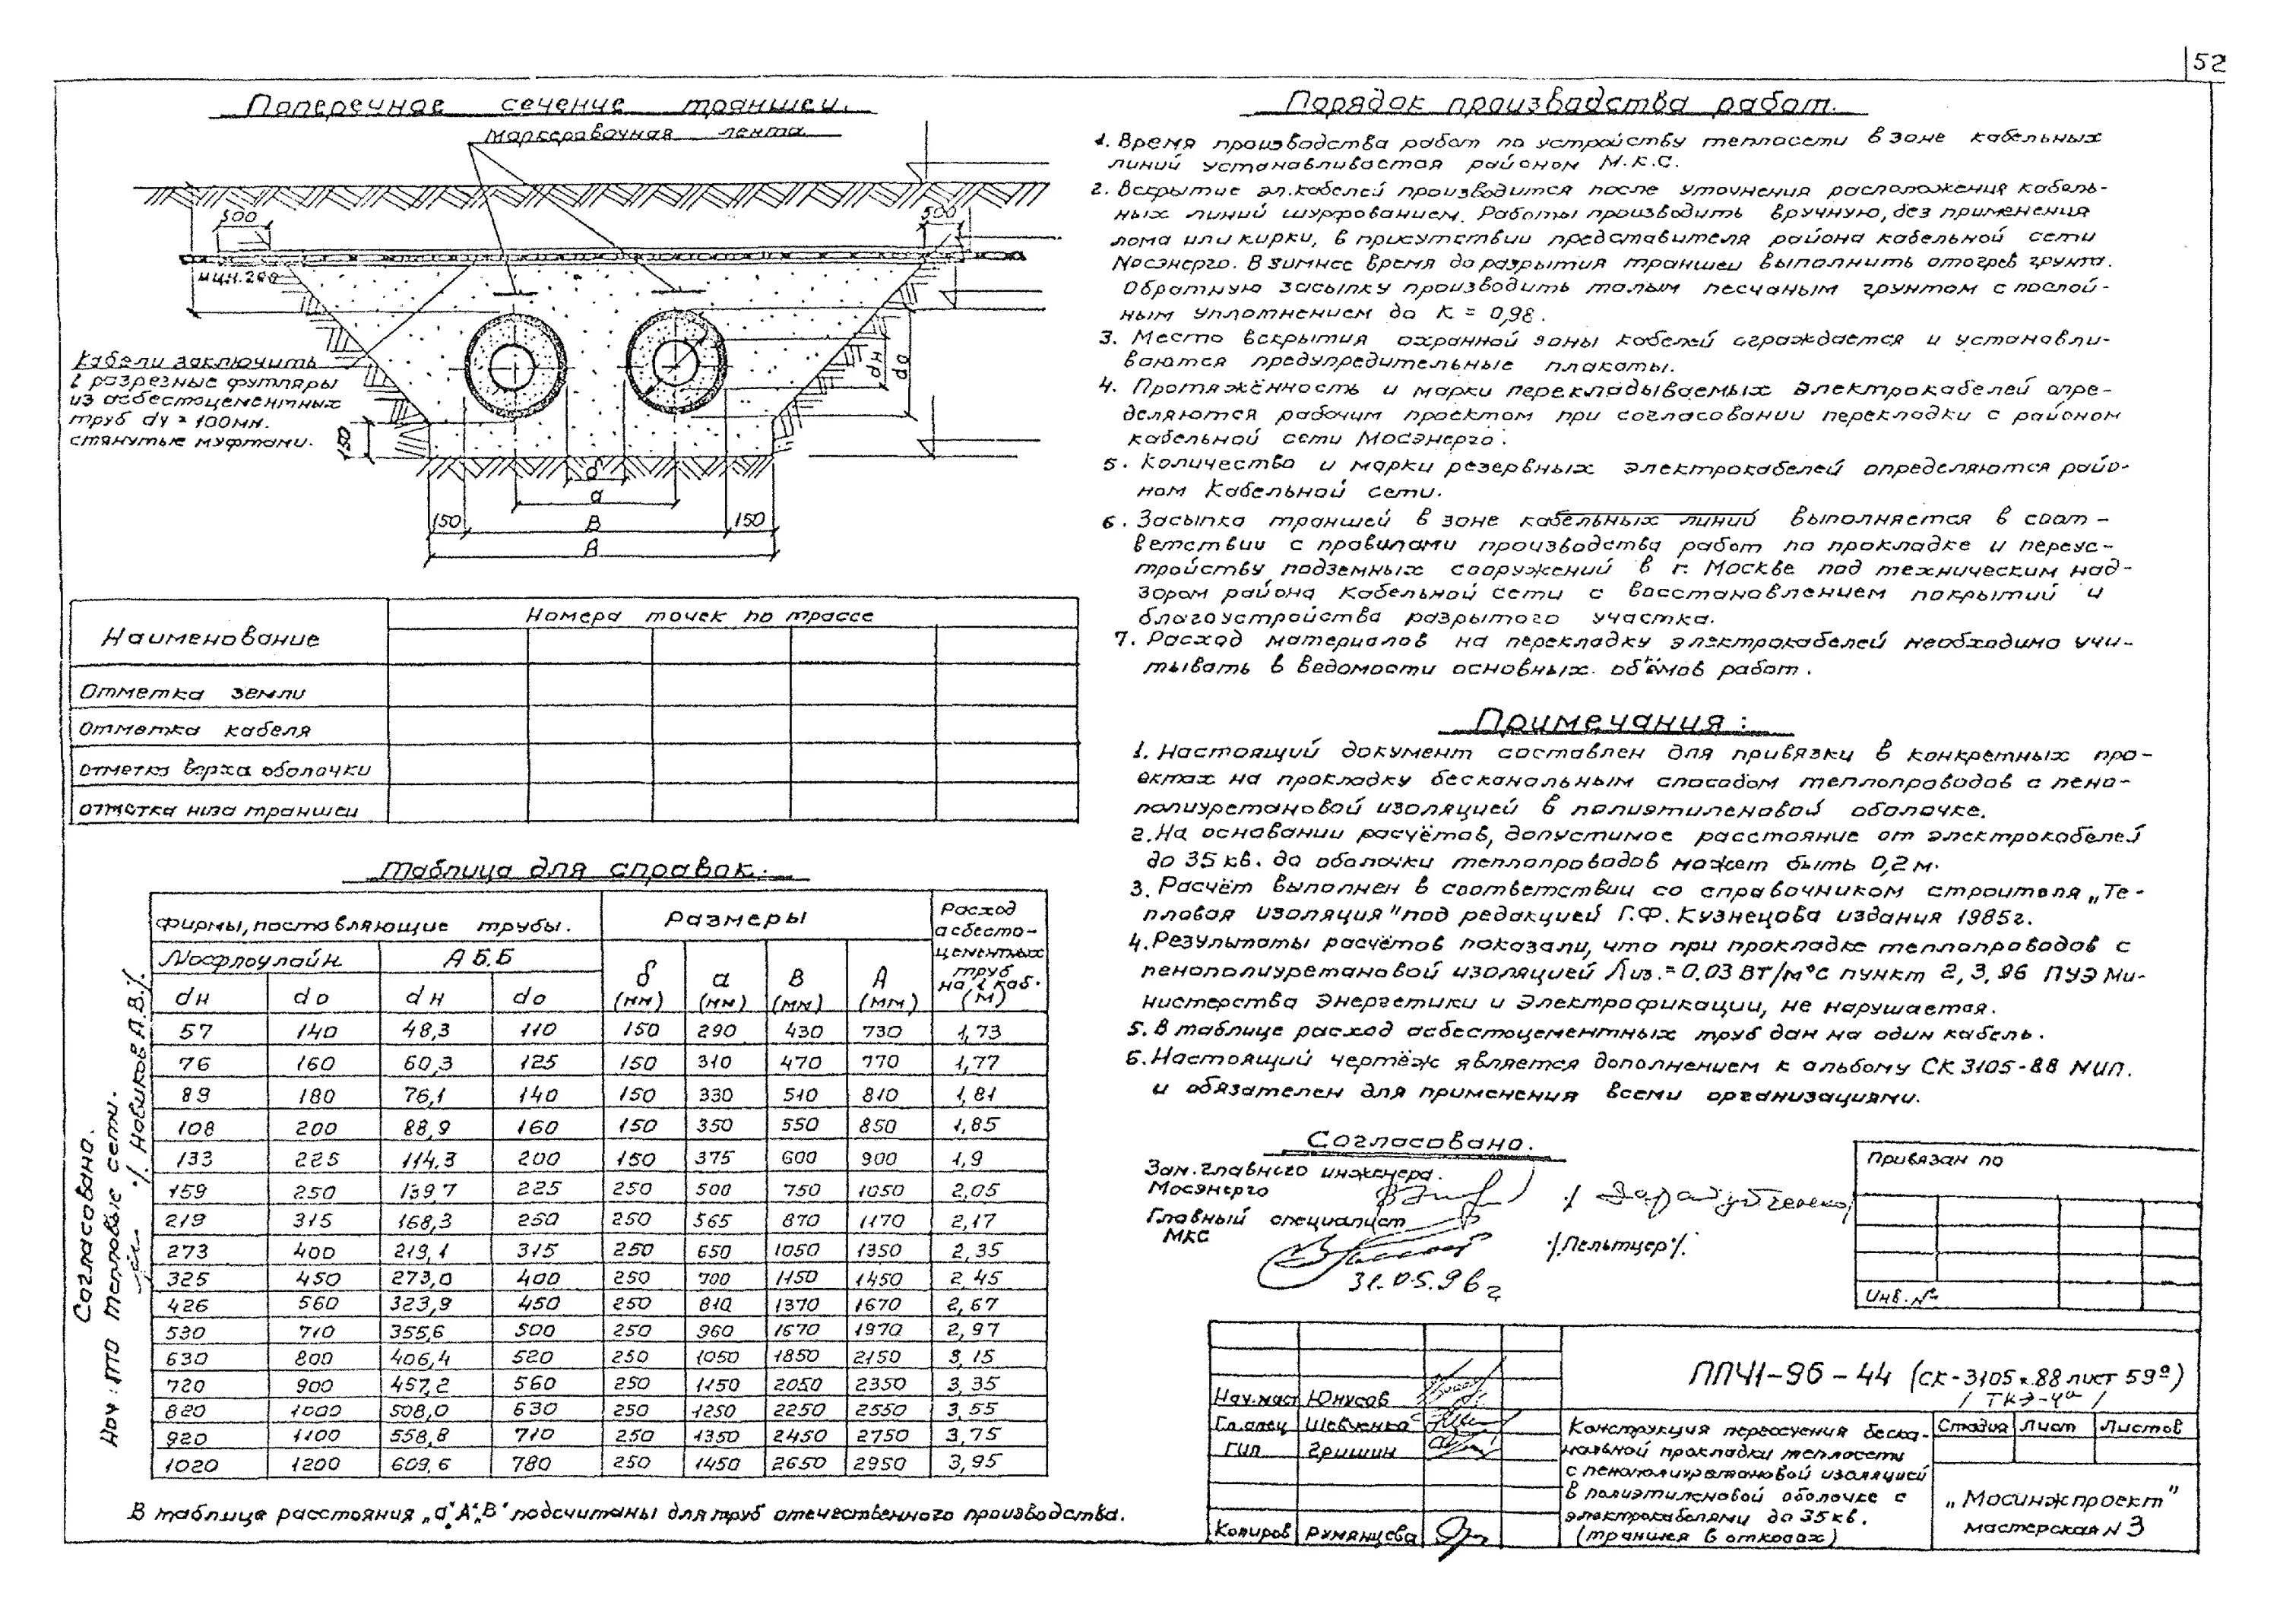 52
Поперечное сечение траншеи.
Маркеровочная лента
500
500
мин. 200
Кабели заключить
в разрезные футляры
из асбестоцементных
труб dу = 100мм.
стянутые муфтами.
150
dн
dо
δ
а
150
В
150
А
Наименование
Номера точек по трассе
Отметка земли
Отметка кабеля
отметка верха оболочки
отметка низа траншеи
Таблица для справок.
Фирмы, поставляющие трубы.
Размеры
Расход
асбесто-
цементных
труб
на 1 каб.
(м)
Мосфлоулайн
А Б.Б
δ
(мм)
а
(мм)
В
(мм)
А
(мм)
dн dо dн dо
57 140 48,3 110 150 290 430 730 1,73
76 160 60,3 125 150 310 470 770 1,77
89 180 76,1 140 150 330 510 810 1,81
108 200 88,9 160 150 350 550 850 1,85
133 225 114,3 200 150 375 600 900 1,9
159 250 139,7 225 250 500 750 1050 2,05
219 315 168,3 250 250 565 870 1170 2,17
273 400 219,1 315 250 650 1050 1350 2,35
325 450 273,0 400 250 700 1150 1450 2,45
426 560 323,9 450 250 810 1370 1670 2,67
530 710 355,6 500 250 960 1670 1970 2,97
630 800 406,4 520 250 1050 1850 2150 3,15
720 900 457,2 560 250 1150 2050 2350 3,35
820 1000 508,0 630 250 1250 2250 2550 3,55
920 1100 558,8 710 250 1350 2450 2750 3,75
1020 1200 609,6 780 250 1450 2650 2950 3,95
В таблице расстояния „а", „А", „В" подсчитаны для труб отечественного производства.
Согласовано.
Нач. ПТО Тепловые сети.
/. Новиков А.В./.
Порядок производства работ.
1. Время производства работ по устройству теплосети в зоне кабельных
линий устанавливается районом М.К.С.
2. Вскрытие эл.кабелей производится после уточнения расположения кабель-
ных линий шурфованием. Работы производить вручную, без применения
лома или кирки, в присутствии представителя района кабельной сети
Мосэнерго. В зимнее время до разрытия траншеи выполнить отогрев грунта.
Обратную засыпку производить талым песчаным грунтом с послой-
ным уплотнением до К = 0,98.
3. Место вскрытия охранной зоны кабелей ограждается и устанавли-
ваются предупредительные плакаты.
4. Протяжённость и марки перекладываемых электрокабелей опре-
деляются рабочим проектом при согласовании перекладки с районом
кабельной сети Мосэнерго.
5. Количество и марки резервных электрокабелей определяются райо-
ном Кабельной сети.
6. Засыпка траншей в зоне кабельных линий выполняется в соот-
ветствии с правилами производства работ по прокладке и переус-
тройству подземных сооружений в г. Москве под техническим над-
зором района Кабельной сети с восстановлением покрытий и
благоустройства разрытого участка.
7. Расход материалов на перекладку электрокабелей необходимо учи-
тывать в ведомости основных объёмов работ.
Примечания:
1. Настоящий документ составлен для привязки в конкретных про-
ектах на прокладку бесканальным способом теплопроводов с пено-
полиуретановой изоляцией в полиэтиленовой оболочке.
2. На основании расчётов, допустимое расстояние от электрокабелей
до 35 кв. до оболочки теплопроводов может быть 0,2 м.
3. Расчёт выполнен в соответствии со справочником строителя „Те-
пловая изоляция" под редакцией Г.Ф. Кузнецова издания 1985г.
4. Результаты расчётов показали, что при прокладке теплопроводов с
пенополиуретановой изоляцией λиз.= 0,03 Вт/м°с пункт 2, 3, 96 ПУЭ Ми-
нистерства Энергетики и Электрофикации, не нарушается.
5. В таблице расход асбестоцементных труб дан на один кабель.
6. Настоящий чертёж является дополнением к альбому СК 3105-88 МИП.
и обязателен для применения всеми организациями.
Согласовано.
Зам. главного инженера.
Мосэнерго
Главный специалист
МКС
/.Пельтцер/.
31.05.96г
Привязан по
Инв. №
ППЧ1-96-44 (СК-3105-88 лист 59а)
/ ТКЭ-4а /
Нач.маст Юнусов
Гл.спец Шевченко
ГИП Гришин
Копиров Румянцева
Конструкция пересечения беска-
нальной прокладки теплосети
с пенополиуретановой изоляцией
в полиэтиленовой оболочке с
электрокабелями до 35кв.
(траншея в откосах)
Стадия Лист Листов
„Мосинжпроект"
мастерская N 3